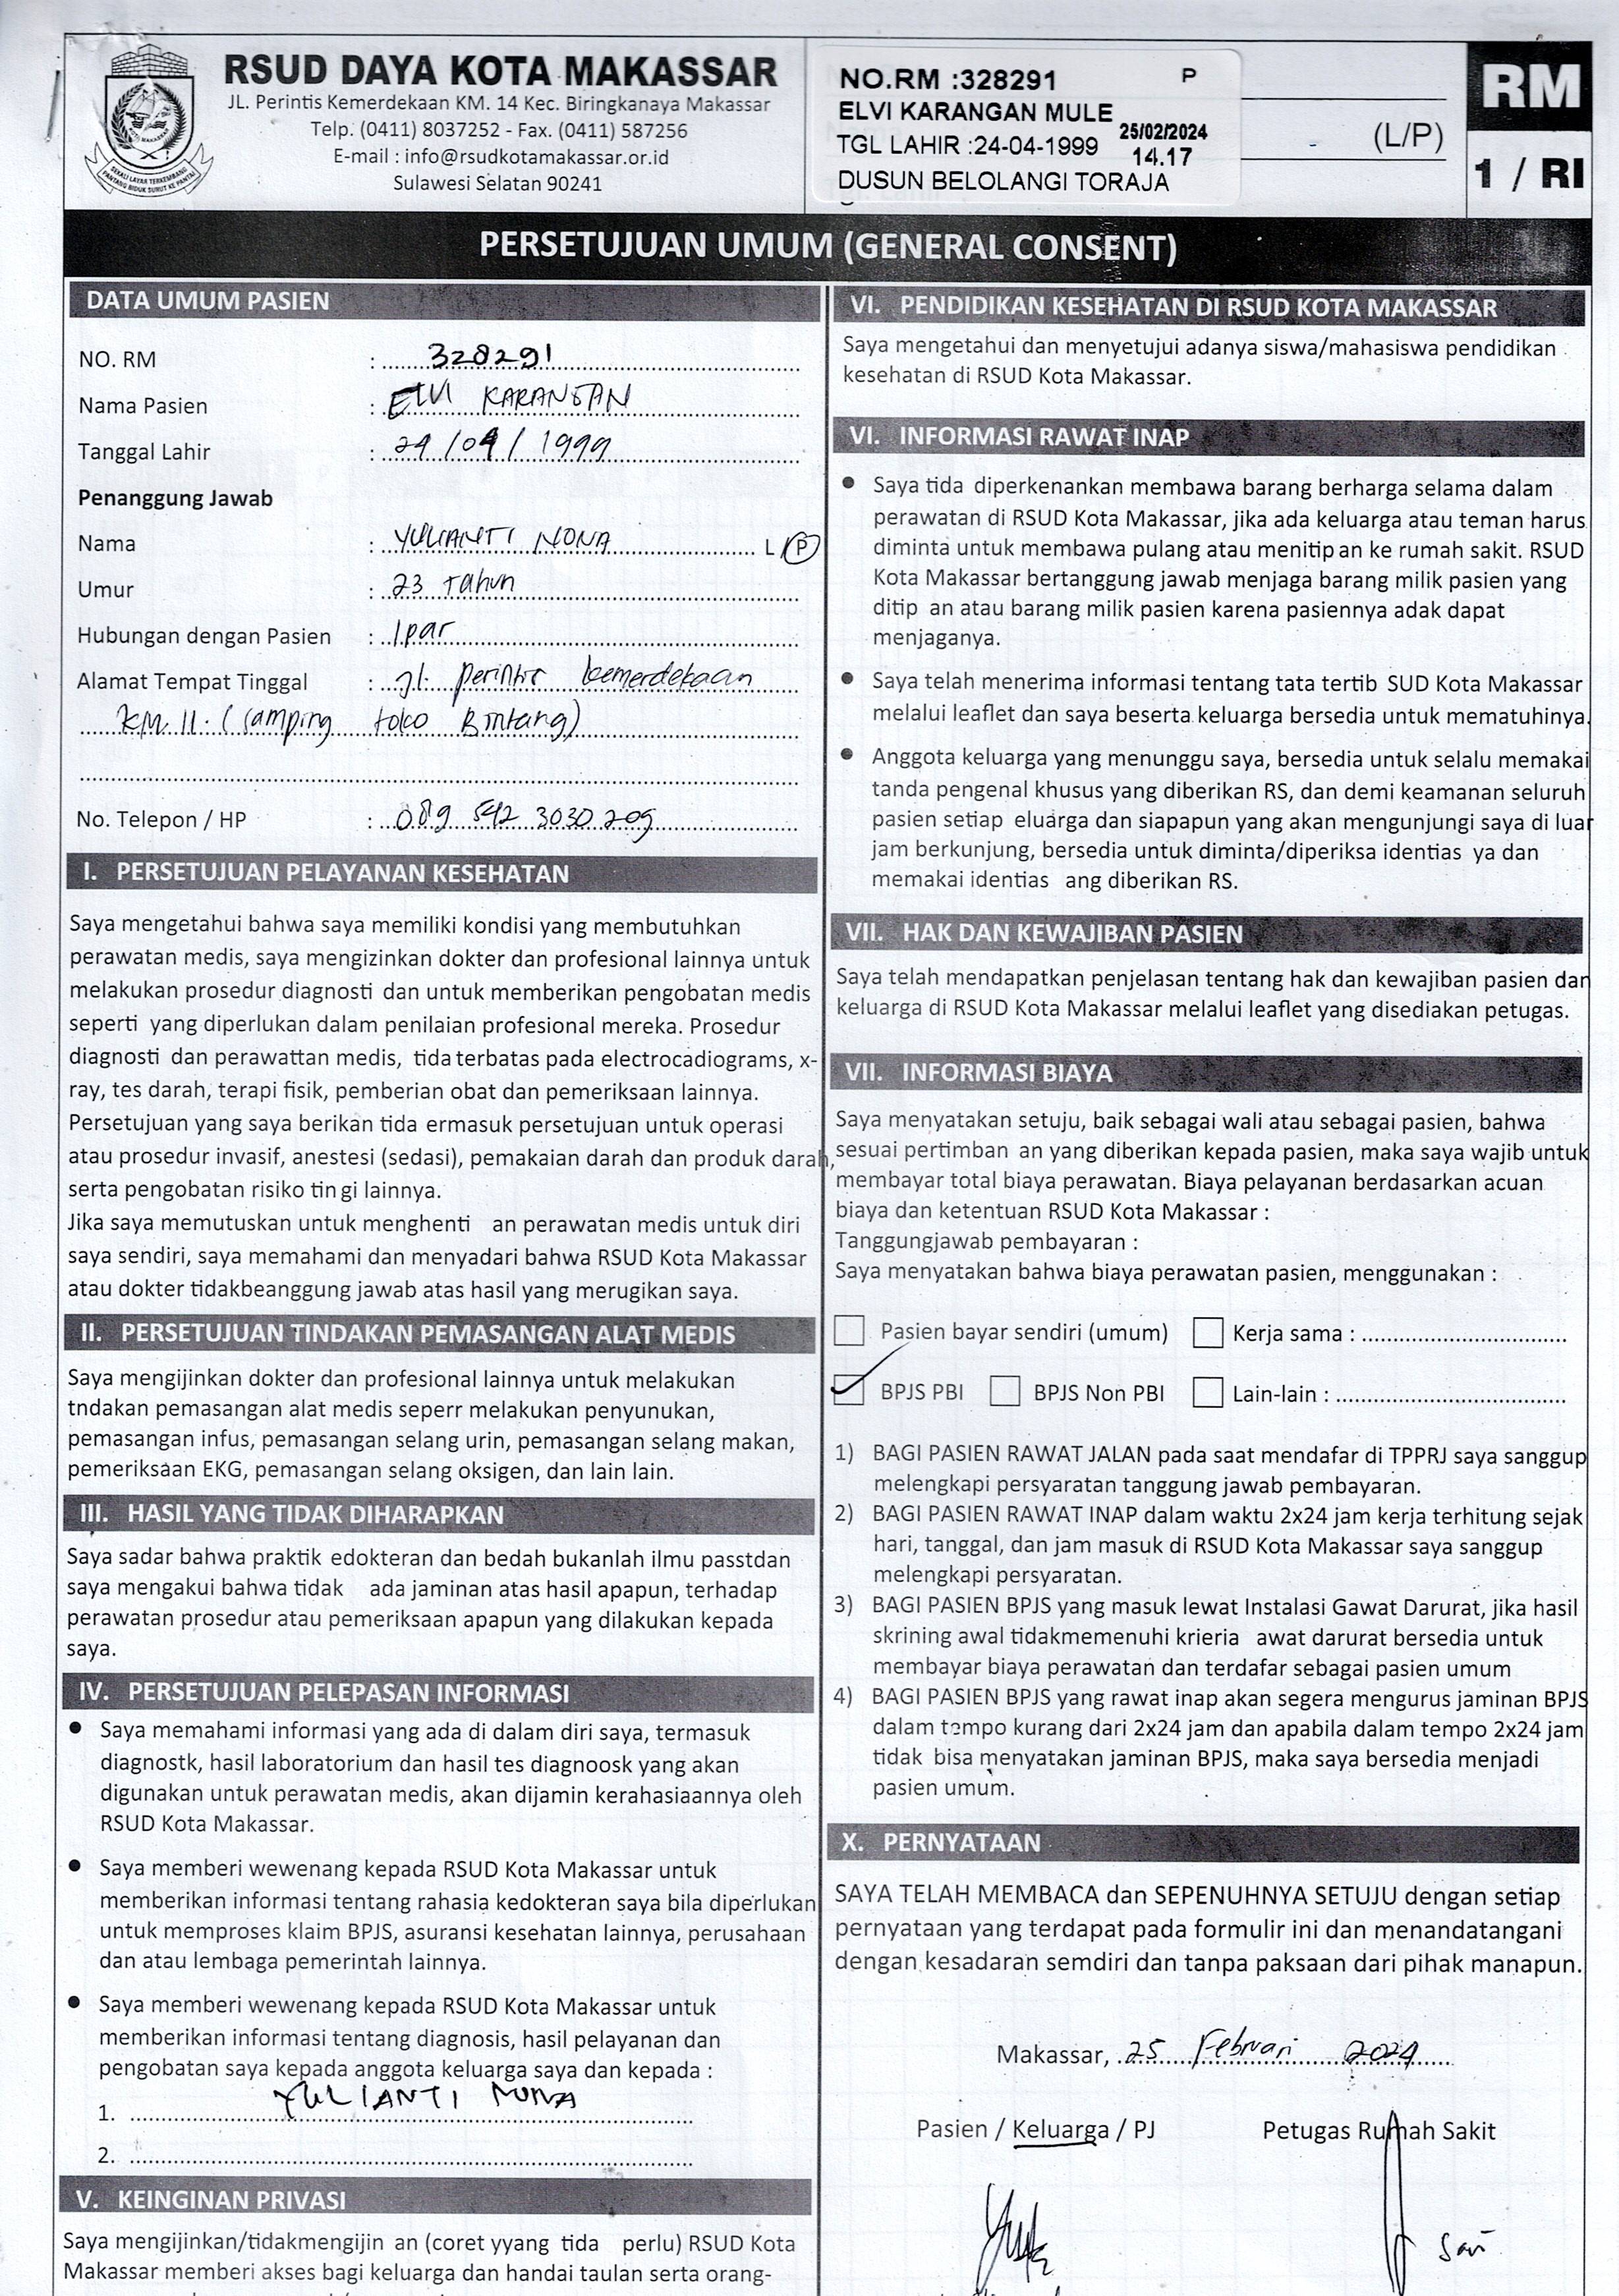 RSUD DAYA KOTA MAKASSAR
JL. Perintis Kemerdekaan KM. 14 Kec. Biringkanaya Makassar
Telp. (0411) 8037252 - Fax. (0411) 587256
E-mail : info@rsudkotamakassar.or.id
Sulawesi Selatan 90241
NO.RM :328291 P
ELVI KARANGAN MULE
TGL LAHIR :24-04-1999 25/02/2024
14.17
DUSUN BELOLANGI TORAJA
(L/P)
RM
1 / RI
PERSETUJUAN UMUM (GENERAL CONSENT)
DATA UMUM PASIEN
NO. RM : 328291
Nama Pasien : ELVI KARANGAN
Tanggal Lahir : 24/04/1999
Penanggung Jawab
Nama : YULIANTI NONA L/P
Umur : 23 Tahun
Hubungan dengan Pasien : Ipar
Alamat Tempat Tinggal : Jl. perintis kemerdekaan
KM. 11. (samping toko Bintang)
No. Telepon / HP : 089 542 3030 209
I. PERSETUJUAN PELAYANAN KESEHATAN
Saya mengetahui bahwa saya memiliki kondisi yang membutuhkan
perawatan medis, saya mengizinkan dokter dan profesional lainnya untuk
melakukan prosedur diagnosti dan untuk memberikan pengobatan medis
seperti yang diperlukan dalam penilaian profesional mereka. Prosedur
diagnosti dan perawattan medis, tida terbatas pada electrocadiograms, x-
ray, tes darah, terapi fisik, pemberian obat dan pemeriksaan lainnya.
Persetujuan yang saya berikan tida ermasuk persetujuan untuk operasi
atau prosedur invasif, anestesi (sedasi), pemakaian darah dan produk darah,
serta pengobatan risiko tin gi lainnya.
Jika saya memutuskan untuk menghenti an perawatan medis untuk diri
saya sendiri, saya memahami dan menyadari bahwa RSUD Kota Makassar
atau dokter tidakbeanggung jawab atas hasil yang merugikan saya.
II. PERSETUJUAN TINDAKAN PEMASANGAN ALAT MEDIS
Saya mengijinkan dokter dan profesional lainnya untuk melakukan
tndakan pemasangan alat medis seperr melakukan penyunukan,
pemasangan infus, pemasangan selang urin, pemasangan selang makan,
pemeriksaan EKG, pemasangan selang oksigen, dan lain lain.
III. HASIL YANG TIDAK DIHARAPKAN
Saya sadar bahwa praktik edokteran dan bedah bukanlah ilmu passtdan
saya mengakui bahwa tidak ada jaminan atas hasil apapun, terhadap
perawatan prosedur atau pemeriksaan apapun yang dilakukan kepada
saya.
IV. PERSETUJUAN PELEPASAN INFORMASI
● Saya memahami informasi yang ada di dalam diri saya, termasuk
diagnostk, hasil laboratorium dan hasil tes diagnoosk yang akan
digunakan untuk perawatan medis, akan dijamin kerahasiaannya oleh
RSUD Kota Makassar.
● Saya memberi wewenang kepada RSUD Kota Makassar untuk
memberikan informasi tentang rahasia kedokteran saya bila diperlukan
untuk memproses klaim BPJS, asuransi kesehatan lainnya, perusahaan
dan atau lembaga pemerintah lainnya.
● Saya memberi wewenang kepada RSUD Kota Makassar untuk
memberikan informasi tentang diagnosis, hasil pelayanan dan
pengobatan saya kepada anggota keluarga saya dan kepada :
1. YULIANTI NONA
2.
V. KEINGINAN PRIVASI
Saya mengijinkan/tidakmengijin an (coret yyang tida perlu) RSUD Kota
Makassar memberi akses bagi keluarga dan handai taulan serta orang-
VI. PENDIDIKAN KESEHATAN DI RSUD KOTA MAKASSAR
Saya mengetahui dan menyetujui adanya siswa/mahasiswa pendidikan
kesehatan di RSUD Kota Makassar.
VI. INFORMASI RAWAT INAP
● Saya tida diperkenankan membawa barang berharga selama dalam
perawatan di RSUD Kota Makassar, jika ada keluarga atau teman harus
diminta untuk membawa pulang atau menitip an ke rumah sakit. RSUD
Kota Makassar bertanggung jawab menjaga barang milik pasien yang
ditip an atau barang milik pasien karena pasiennya adak dapat
menjaganya.
● Saya telah menerima informasi tentang tata tertib SUD Kota Makassar
melalui leaflet dan saya beserta keluarga bersedia untuk mematuhinya.
● Anggota keluarga yang menunggu saya, bersedia untuk selalu memakai
tanda pengenal khusus yang diberikan RS, dan demi keamanan seluruh
pasien setiap eluarga dan siapapun yang akan mengunjungi saya di luar
jam berkunjung, bersedia untuk diminta/diperiksa identias ya dan
memakai identias ang diberikan RS.
VII. HAK DAN KEWAJIBAN PASIEN
Saya telah mendapatkan penjelasan tentang hak dan kewajiban pasien dan
keluarga di RSUD Kota Makassar melalui leaflet yang disediakan petugas.
VII. INFORMASI BIAYA
Saya menyatakan setuju, baik sebagai wali atau sebagai pasien, bahwa
sesuai pertimban an yang diberikan kepada pasien, maka saya wajib untuk
membayar total biaya perawatan. Biaya pelayanan berdasarkan acuan
biaya dan ketentuan RSUD Kota Makassar :
Tanggungjawab pembayaran :
Saya menyatakan bahwa biaya perawatan pasien, menggunakan :
Pasien bayar sendiri (umum) Kerja sama :
BPJS PBI BPJS Non PBI Lain-lain :
1) BAGI PASIEN RAWAT JALAN pada saat mendafar di TPPRJ saya sanggup
melengkapi persyaratan tanggung jawab pembayaran.
2) BAGI PASIEN RAWAT INAP dalam waktu 2x24 jam kerja terhitung sejak
hari, tanggal, dan jam masuk di RSUD Kota Makassar saya sanggup
melengkapi persyaratan.
3) BAGI PASIEN BPJS yang masuk lewat Instalasi Gawat Darurat, jika hasil
skrining awal tidakmemenuhi krieria awat darurat bersedia untuk
membayar biaya perawatan dan terdafar sebagai pasien umum
4) BAGI PASIEN BPJS yang rawat inap akan segera mengurus jaminan BPJS
dalam tempo kurang dari 2x24 jam dan apabila dalam tempo 2x24 jam
tidak bisa menyatakan jaminan BPJS, maka saya bersedia menjadi
pasien umum.
X. PERNYATAAN
SAYA TELAH MEMBACA dan SEPENUHNYA SETUJU dengan setiap
pernyataan yang terdapat pada formulir ini dan menandatangani
dengan kesadaran semdiri dan tanpa paksaan dari pihak manapun.
Makassar, 25 Februari 2024
Pasien / Keluarga / PJ Petugas Rumah Sakit
Sari